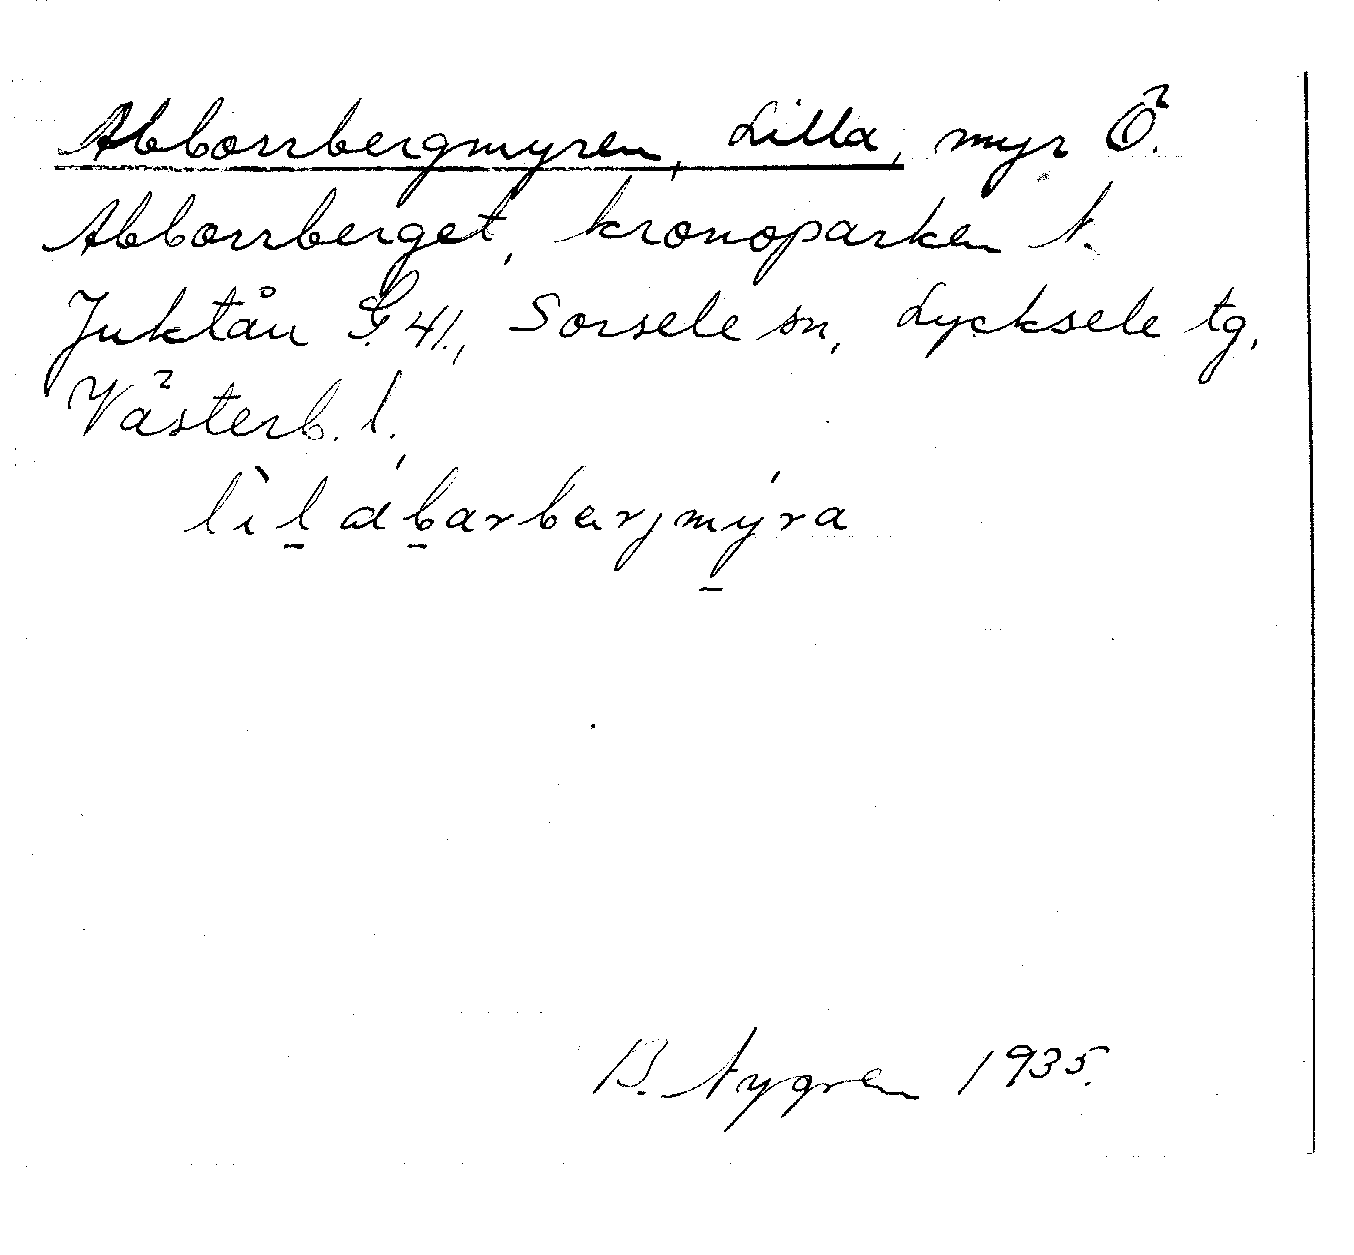 Abborrbergmyren, Lilla, myr Ö.
Abborrberget, kronoparken N.
Juktån G 41, Sorsele sn, Lycksele tg,
Västerb. l.
lìl̠ áb̠arbærjmýr̠a
B. Nygren 1935.